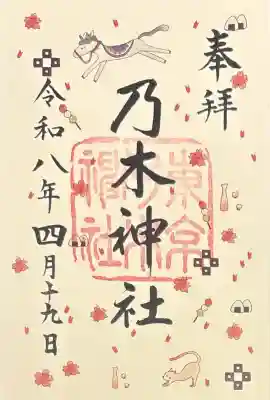 奉拝
乃木神社
令和八年四月十九日
東京